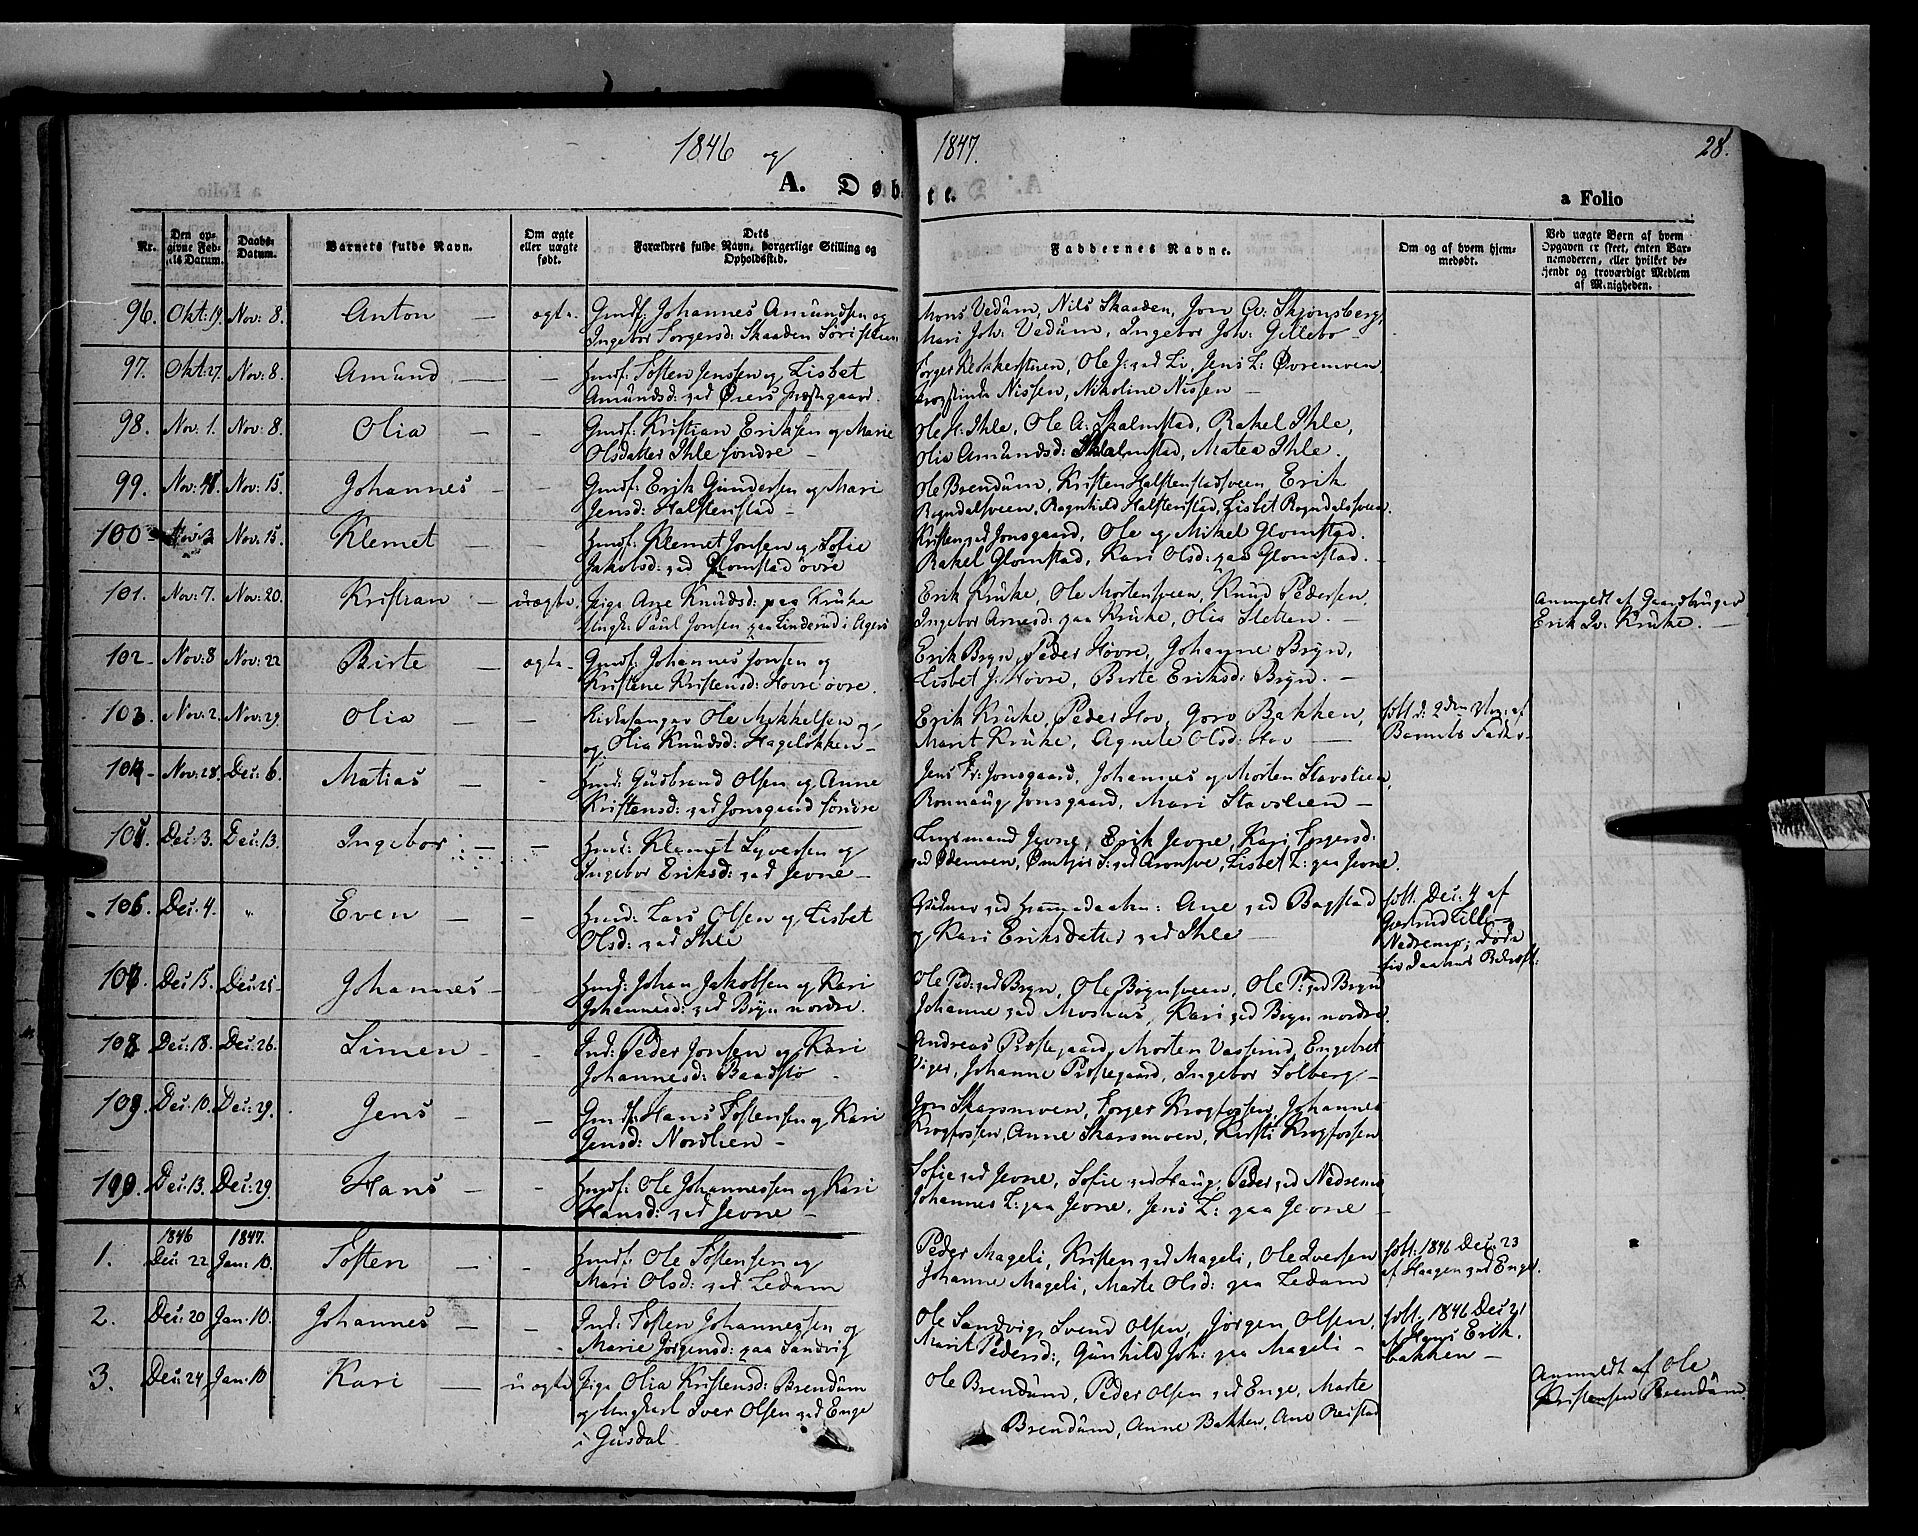 1846 og 1847. 28.
A. Døbte. a Folio
Nr.
Den opgivne Fødsels Datum.
Daabs-Datum.
Barnets fulde Navn.
Om ægte eller uægte født.
Dets Forældres fulde Navn, borgerlige Stilling og Opholdssted.
Faddernes Navne.
Om og af hvem hjemmedøbt.
Ved uægte Børn af hvem Opgaven er skeet, enten Barnemoderen, eller hvilket bekjendt og troværdigt Medlem af Menigheden.
96. Okt: 19. Nov: 8. Anton — ægte. Gmdf: Johannes Amundsen og Mons Vedum, Nils Skaaden, Jon A: Skjønsberg,
Ingebor Torgersd: Skaaden Mari Joh: Vedum, Ingebor Joh: Gillebo —
97. Okt: 27. Nov: 8. Amund — — Hmdf: Tosten Jensen og Lisbet Ole J: ved Li, Jens L: Øvremoen
Amundsd: ved Øiers Præstegaard. Nissen, Nikoline Nissen —
98. Nov: 1. Nov: 8. Olia — — Gmdf: Kristian Eriksen og Marie Ole H: Ihle, Ole A: Skalmstad, Rakel Ihle,
Olsdatter Ihle søndre — Olia Amundsd: Skalmstad, Matea Ihle.
99. Nov: Nov: 15. Johannes — — Gmdf: Erik Gundersen og Mari Ole Brendum, Kristen Halstenstadsveen, Erik
Jensd: Halstenstad — Rogndalsveen, Ragnhild Halstenstad, Lisbet Rogndalsveen.
100 Nov: Nov: 15. Klemet — — Hmdf: Klemet Jonsen og Sofie Kristen ved Jonsgaard, Ole og Mikel Glomstad.
Jakobsd: ved Glomstad øvre Rakel Glomstad, Kari Olsd: paa Glomstad. —
101. Nov: 7. Nov: 20. Kristian — uægte. Pige Ane Knudsd: paa Kruke Erik Kruke, Ole Mortensveen, Knud Pedersen, Anmeldt af Gaardbruger
Ungk: Paul Jonsen paa Linderud i Agers Ingebor Arnesd: paa Kruke, Olia Sletten. — Erik Iv: Kruke. —
102. Nov: 8 Nov: 22 Birte — ægte. Gmdf: Johannes Jonsen og Erik Bryn, Peder Hovre, Johanne Bryn,
Kristene Kristensd: Hovre øvre. Lisbet J: Hovre, Birte Eriksd: Bryn. —
103. Nov: 2. Nov: 29. Olia — — Kirkesanger Ole Mikkelsen og Erik Kruke, Peder Hov, Goro Bakken, døbt d: 2den Nov: af
og Olia Knudsd: Hageløkken — Marit Kruke, Agnete Olsd: Hov — Barnets Fader.
104. Nov: 28. Dec: 6. Matias — — Hmd: Gudbrand Olsen og Anne Jens Fr: Jonsgaard, Johannes og Morten Stavslien,
Kristensd: ved Jonsgaard søndre Ronnaug Jonsgaard, Mari Stavslien —
105. Dec: 3. Dec: 13. Ingebor — — Hmd: Klemet Syversen og Jevne, Erik Jevne, Kari Torgersd:
Ingebor Eriksd: ved Jevne — Lisbet L: paa Jevne.
106. Dec: 4. " Even — — Hmd: Lars Olsen og Lisbet Vidner ved Hjemmedaaben: Ane ved Bagstad døbt. Dec: 4 af
Olsd: ved Ihle og Kari Eriksdatter ved Ihle — Gertrud
Nedremo; døde
før Daabens
107. Dec: 15. Dec: 25. Johannes — — Hmd: Johan Jakobsen og Kari Ole Ped: ved Bryn, Ole Brynsveen, Ole P: ved Bryn
Johannesd: ved Bryn nordre. Johanne ved Moshus, Kari ved Bryn nordre.
108. Dec: 18. Dec: 26. Simen — — Ind: Peder Jonsen og Kari Andreas Præstegaard, Morten Vasrud, Engebret
Johannesd: Baadstø — Johanne Præstegaard, Ingebor Solberg —
109. Dec: 10. Dec: 29. Jens — — Gmdf: Hans Tostensen og Kari Jon Skarsmoen, Torger Krogfossen, Johannes
Jensd: Nordlien — Krogfossen, Anne Skarsmoen, Kirsti Krogfossen
110. Dec: 13. Dec: 29 Hans — — Hmdf: Ole Johannessen og Kari Sofie ved Jevne, Sofie ved Haug, Peder ved Nedremo
Hansd: ved Jevne — Johannes L: paa Jevne, Jens L: paa Jevne —
1846 1847.
1. Dec: 22 Jan: 10. Tosten — — Hmdf: Ole Tostensen og Peder Mageli, Kristen ved Mageli, Ole Iversen døbt. 1846 Dec: 23
Mari Olsd: ved Ledum Johanne Mageli, Marte Olsd: paa Ledum af Haagen ved Enge.
2. Dec: 20 Jan: 10. Johannes — — Ind: Tosten Johannessen og Ole Sandvig, Svend Olsen, Jørgen Olsen, døbt. 1846 Dec: 21
Marie Jørgensd: paa Sandvig Marit Pedersd:, Gunhild Joh: paa Mageli — af Hans Erik-
bakken —
3. Dec: 24 Jan: 10 Kari — uægte Pige Olia Kristensd: Brendum Ole Brendum, Peder Olsen ved Enge, Marte Anmeldt af Ole
og Ungkarl Iver Olsen ved Enge Brendum, Anne Bakken, Ane Reistad Kristensen Brendum.
i Gusdal